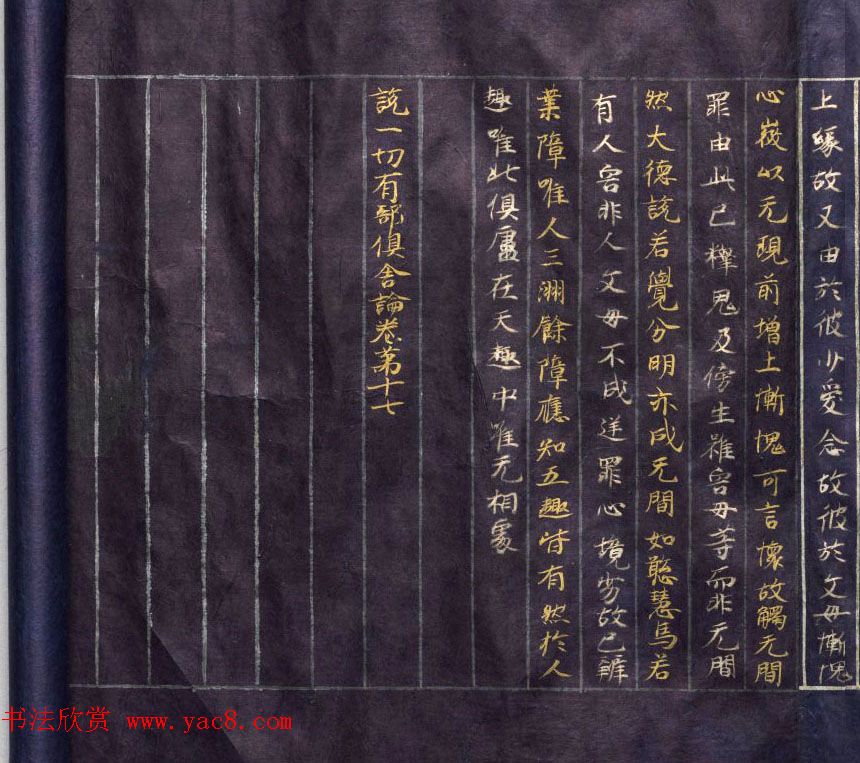 上緣故又由於彼少愛念故彼於父母慚愧
心㣲以无現前增上慚愧可言懷故觸无間
罪由此已釋鬼及傍生雖害母等而非无間
然大德說若覺分明亦成无間如聡慧馬若
有人害非人父母不成逆罪心境劣故已辯
業障唯人三洲餘障應知五趣皆有然於人
趣唯此俱盧在天趣中唯无相處
說一切有部俱舍論卷第十七
书法欣赏 www.yac8.com